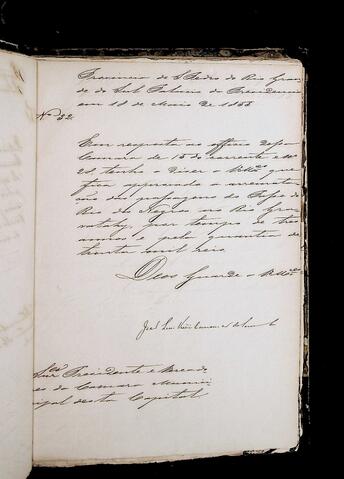 Provincia de S. Pedro do Rio Gran
de do Sul Palacio da Presidencia
em 18 de Maio de 1855
Nº 52
Em resposta ao officio dessa
Camara de 15 do corrente e nº
21, tenho a dizer a VMces que
fica approvada a arremata
ção das passagens do Passo do
no Rio Gra
vatahy, por tempo de tres
annos e pela quantia de
trinta mil reis
Deos Guarde a VMces
Snres Presidente e Verea
es da Camara Munici
pal desta Capital